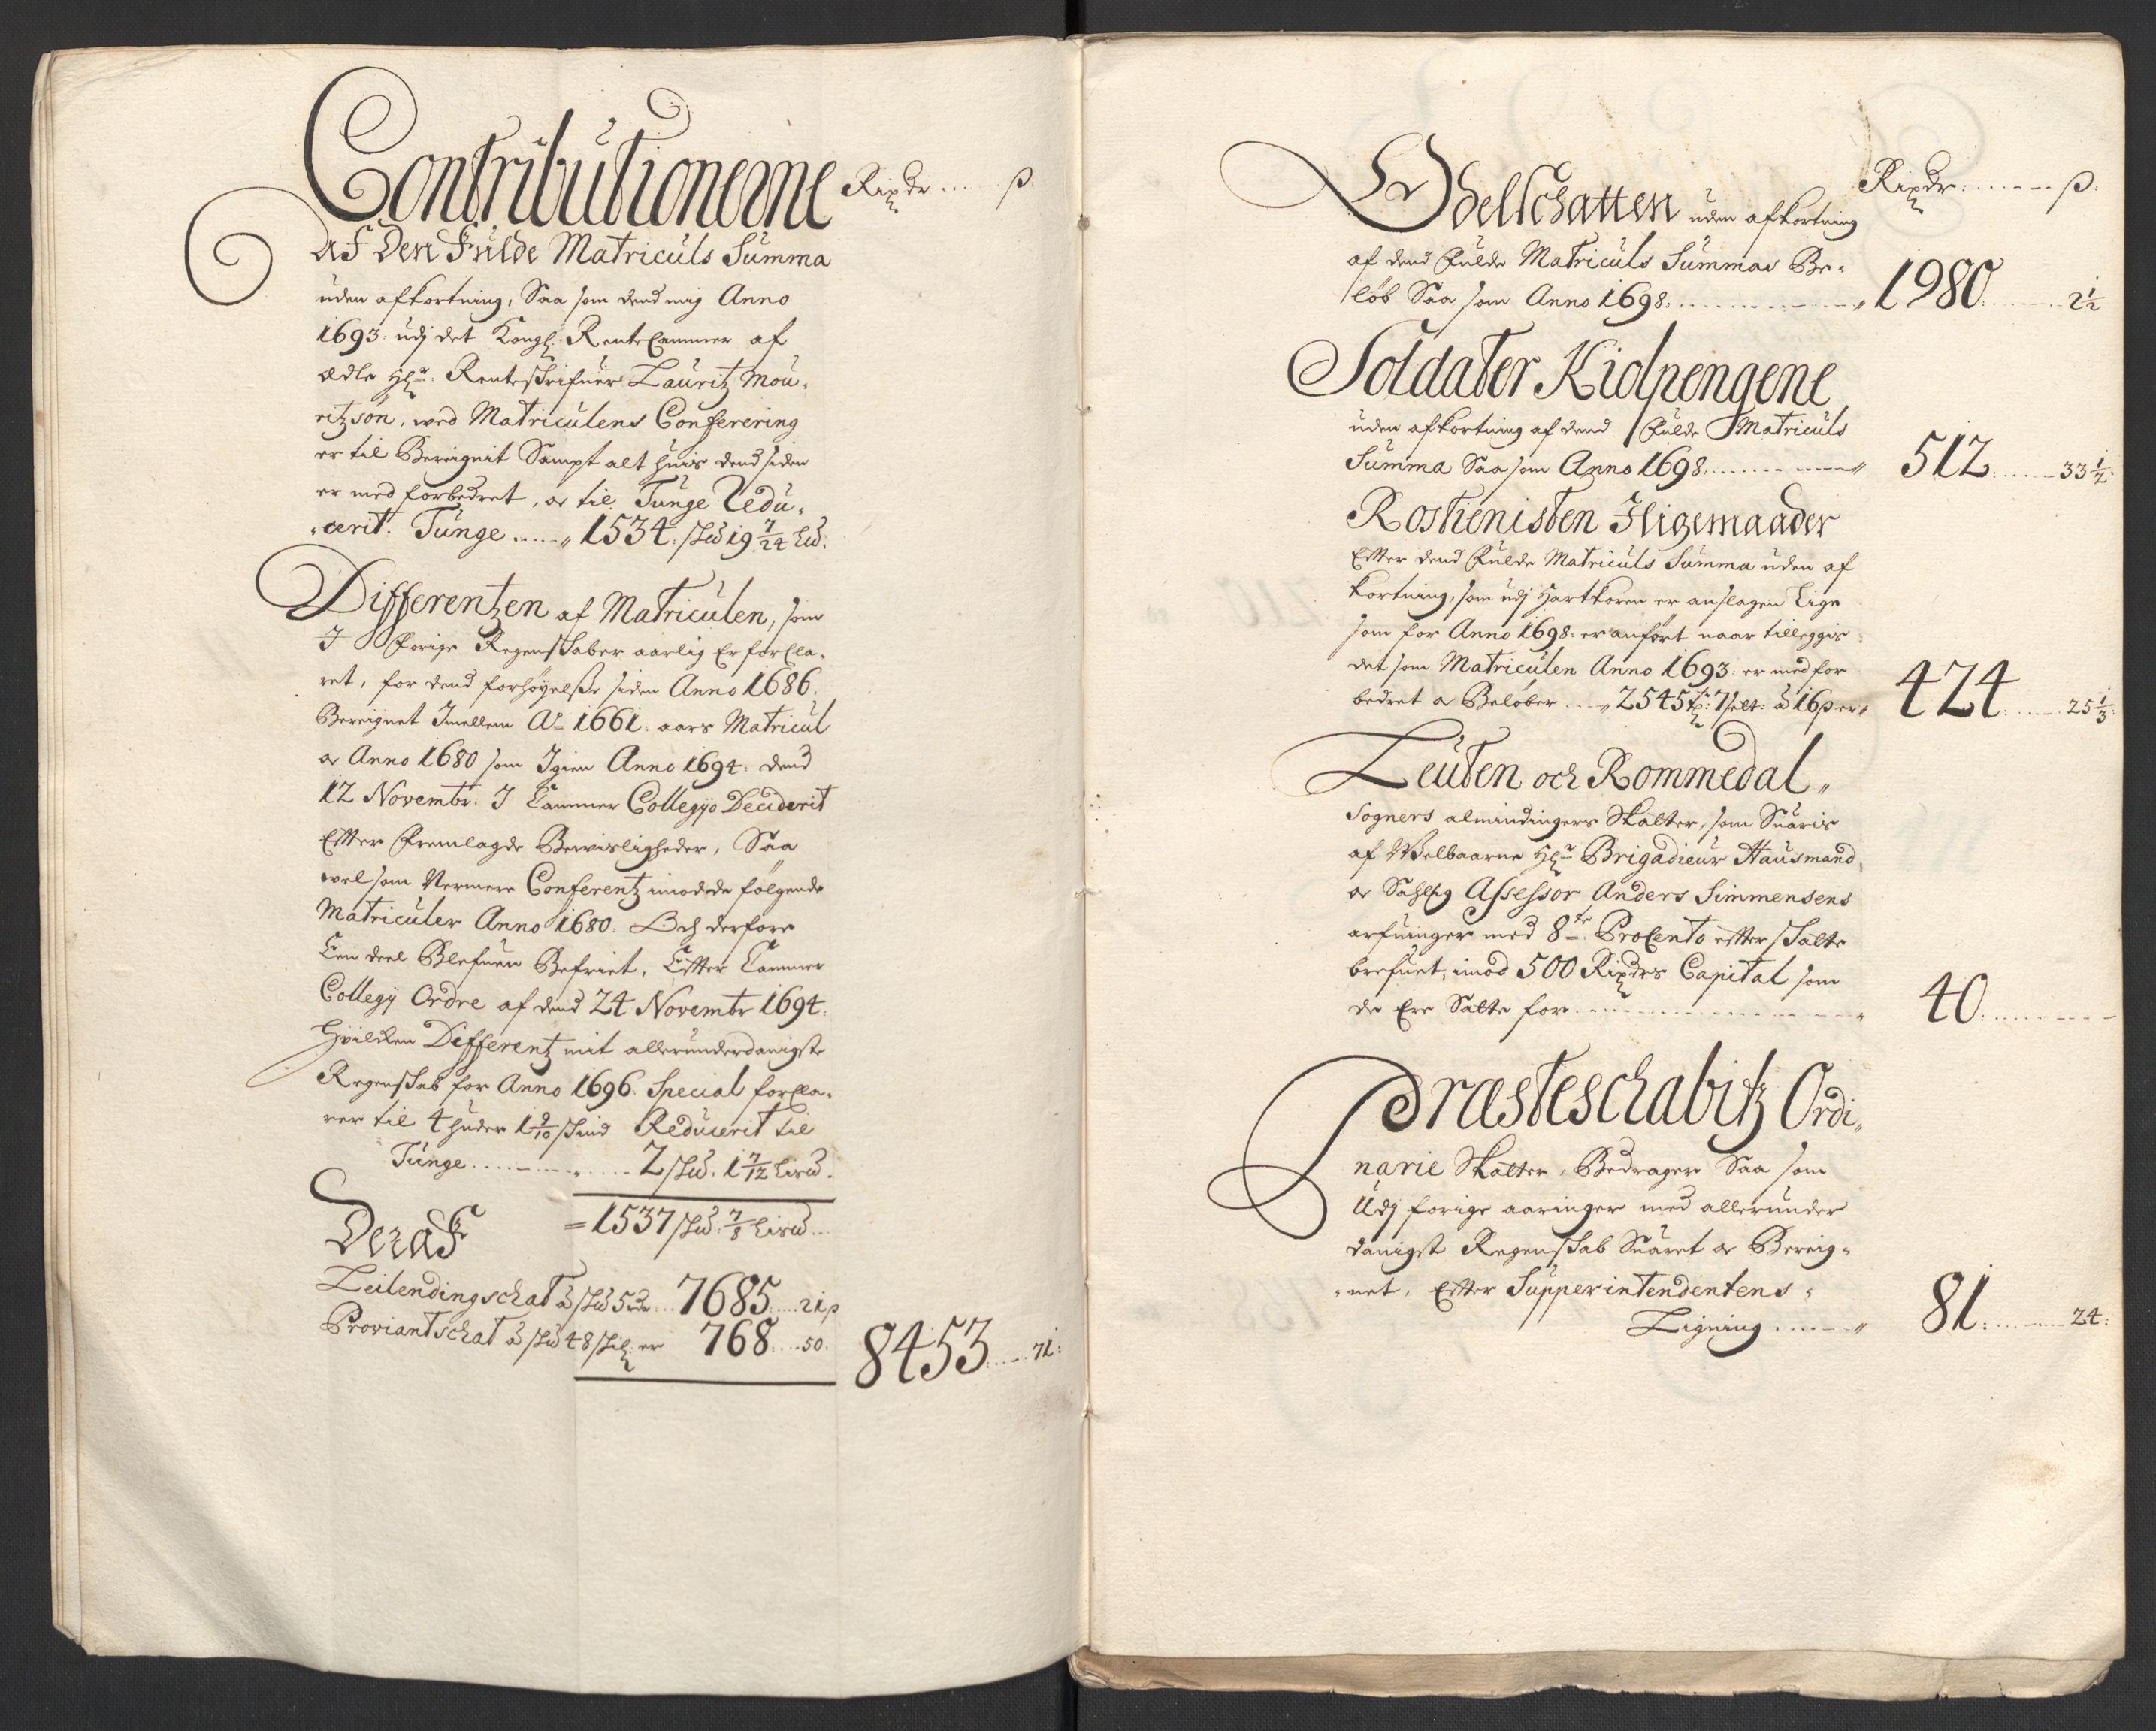 Contributionerne Rixdr ..... ß.
Af Den Fulde Matriculs Summa
uden afkortning, Saa som dend mig Anno
1693. udj det Kongl: RenteCammer af
ædle Hr: Renteskrifuer Lauritz Mou-
ritzsøn, wed Matriculens Conferering
er til Bereignit Sampt alt huis dend siden
er med forbedret, er til Tunge Redu-
cerit. Tunge ..... 1534. skd 19 7/24 Ld:
Differentzen af Matriculen, som
I Forige Regenskaber aarlig Er forkla-
ret, for dend forhøyelse siden Anno 1686.
Bereignet Imellem Ao 1661. aars Matricul
og Anno 1680 som Igien Anno 1694. dend
12 Novembr. I Cammer Collegyo Deciderit
Effter Fremlagde Bewisligheder, Saa
vel som Nermere Conferentz imod de følgende
Matriculer Anno 1680. Och derfore
Een deel Blefuen Befriet, Effter Cammer
Collegij Ordre af dend 24 Novembr 1694.
Hvilcken Differentz mit allerunderdanigste
Regenskab for Anno 1696. Special forkla-
rer til 4 huder 1 9/10 skind Reducerit til
Tunge ........... 2 skd. 1 7/12 Lisd.
Deraf = 1537 skd. 7/8 Lisd...
Leilendingschat â skd 5 rdr ... 7685 .... 21 ß
Proviantschat â skd 48 skil: er 768 .... 50. 8453 ..... 71:
Rixdr: ....... ß:
Odelschatten uden afkortning
af dend Fulde Matriculs Summas Be-
løb Saa som Anno 1698. ............ 1980 ....... 2 1/2
Soldater Kiolpengene
uden afkortning af dend Fulde Matriculs
Summa Saa som Anno 1698 .......... 512 ...... 33 1/2:
Rostienisten Iligemaader
Effter dend Fulde Matriculs Summa uden af
kortning, som udj Hartkoren er anslagen Lige
som for Anno 1698. er anført naar tillegges
det som Matriculen Anno 1693. er med for
bedret og Beløber .... 2545 tr: 7 sett: â 16 ß er 424 ...... 25 1/3:
Leuten och Rommedal
Sogners almindingers Skatter, som Suaris
af Welbaarne Hr Brigadieur Hausmand,
og Sahlig Assessor Anders Simmensens
arfuinger med 8te ProCento effter skatte
brefuet, imod 500 Rixdrs Capital som
de Ere Satte for ............... 40. .......
Præsteschabitz Ordi-
narie Skatter, Bedrager Saa som
Udj forige aaringer med allerunder
danigst Regenskab Suaret og Bereig-
net. Effter Supperintendentens
Ligning ...... 81. ........ 24: